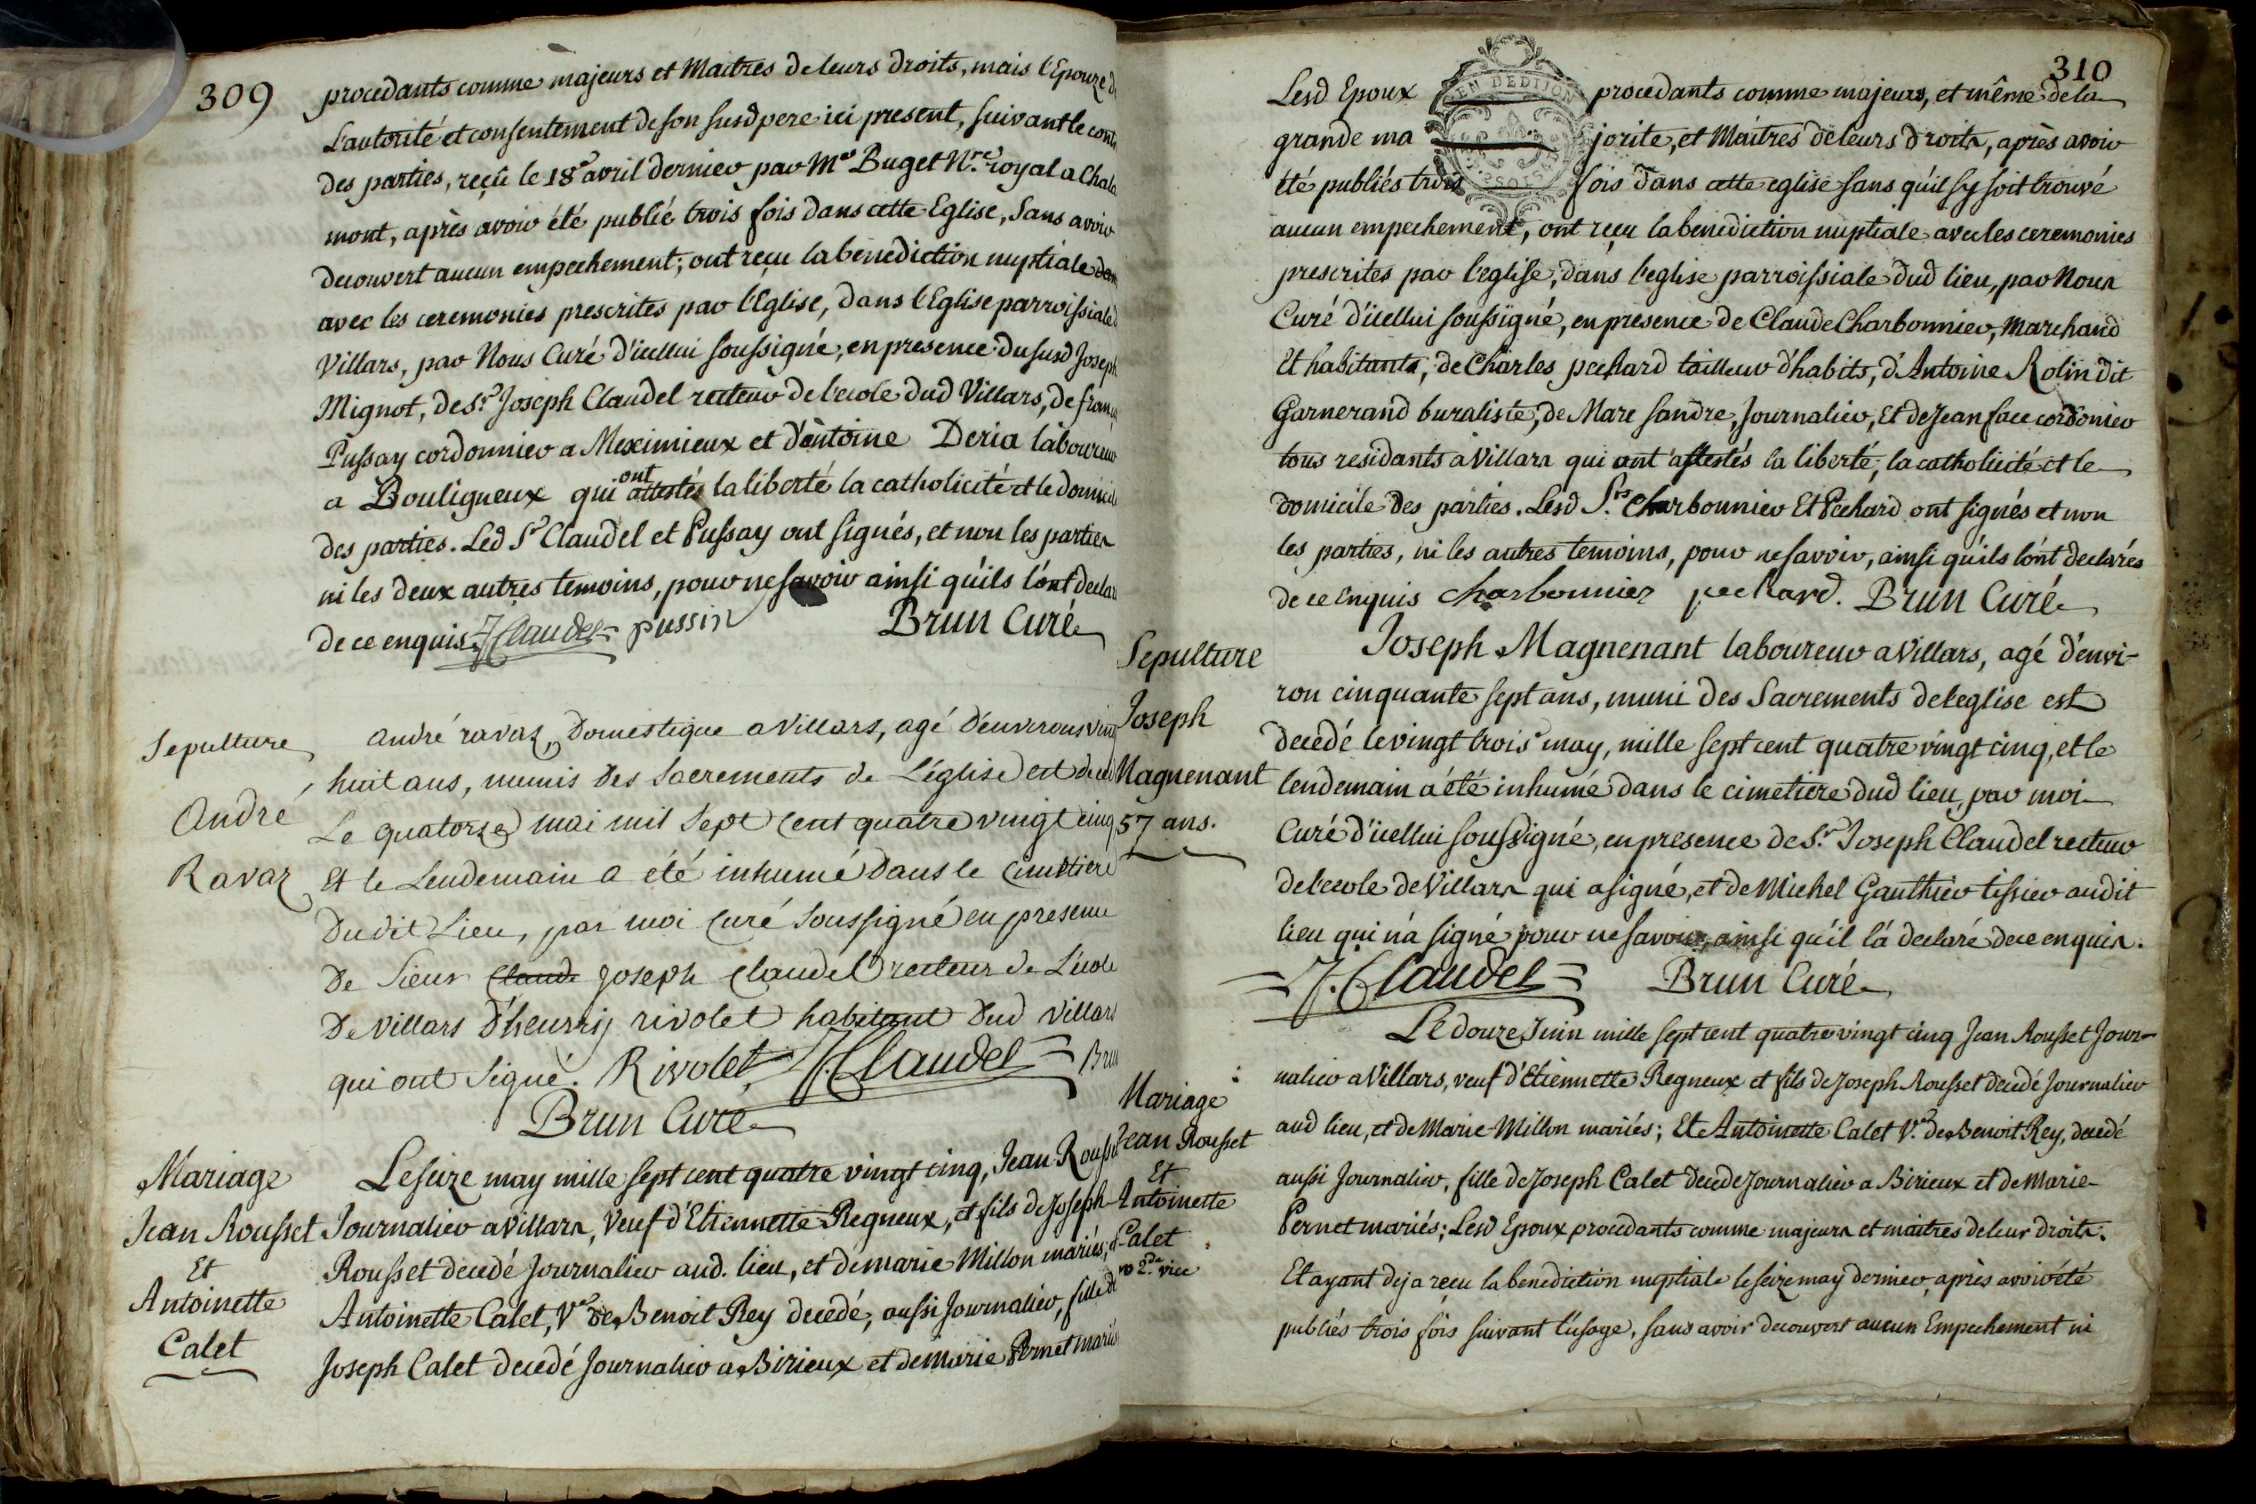 309
procedants comme majeurs et Maitres de leurs droits, mais l'Epouze de
L'autorité et consentement de son susd pere ici present, suivant le cont
des parties, reçû le 18e avril dernier par Me Buget N.re royal a Chala
mont, après avoir été publié trois fois dans cette Eglise, Sans avoir
decouvert aucun empechement; ont reçu la benediction nuptiale
avec les ceremonies prescrites par l'Eglise, dans l'Eglise parroissiale
Villars, par Nous Curé d'icellui soussigné, en presence du susd Joseph
Mignot, de Sr. Joseph Claudel recteur de l'ecole dud Villars, de franç
Pussay cordonnier a Meximieux et d'antoine Deria laboureur
a Bouligneux qui ont attestés la liberté la catholicité et le domicile
des parties. Led Sr Claudel et Pussay ont signés, et non les parties
ni les deux autres temoins, pour ne savoir ainsi qu'ils l'ont declar
de ce enquis. J Claudel pussin Brun Curé
Sepulture
André
Ravaz
andré ravaz, Domestique a Villars, agé d'environs vingt
huit ans, munis des Sacrements de L'église est deced
Le quatorze mai mil Sept Cent quatre vingt cinq
Et le Lendemain a été inhumé dans le cimetiere
Dudit Lieu, par moi Curé Soussigné en presence
De Sieur Claude Joseph Claudel recteur de L'école
De Villars d'heunrij rivolet habitant Dud Villars
qui ont signé. Rivolet J. Claudel Brun
Brun Curé
Mariage
Jean Rousset
Et
Antoinette
Calet
Le seize may mille sept cent quatre vingt cinq, Jean Rousset
Journalier a Villars, Veuf d'Etiennette Regneux, et fils de Joseph
Rousset decedé Journalier aud. lieu, et de marie Millon mariés; et
Antoinette Calet, Ve de Benoit Rey decedé, aussi Journalier, fille de
Joseph Calet decedé Journalier a Birieux et de marie Pernet mariés
310
EN DEDIJON
Lesd Epoux procedants comme majeurs, et même de la
grande ma jorite, et Maitres de leurs droits, après avoir
été publiés trois fois dans cette eglise sans qu'il s'y soit trouvé
aucun empechement, ont reçu la benediction nuptiale avec les ceremonies
prescrites par l'eglise, dans l'eglise parroissiale dud lieu, par Nous
Curé d'icellui soussigné, en presence de Claude Charbonnier, Marchand
Et habitants, de Charles pechard tailleur d'habits, d'Antoine Rolin dit
Garnerand buraliste, de Marc sandre, Journalier, Et de Jean face cordonier
tous residants a Villars qui ont attestés la liberté, la catholicité et le
domicile des parties. Lesd S.rs Charbonnier Et Pechard ont signés et non
les parties, ni les autres temoins, pour ne savoir, ainsi qu'ils l'ont declarés
de ce Enquis charbonnier pechard. Brun Curé
Sepulture
Joseph
Magnenant
57 ans.
Joseph Magnenant laboureur a Villars, agé d'envi-
ron cinquante sept ans, muni des Sacrements de l'eglise est
decedé le vingt trois may, mille sept cent quatre vingt cinq, et le
lendemain a été inhumé dans le cimetiere dud lieu, par moi
Curé d'icellui soussigné, en presence de S.r Joseph Claudel recteur
de l'ecole de Villars qui a signé, et de Michel Gauthier tissier audit
lieu qui n'a signé pour ne savoir, ainsi qu'il l'a declaré de ce enquis.
J. Claudel Brun Curé
Mariage
Jean Rousset
Et
Antoinette
Calet
2.de vice
Le douze Juin mille sept cent quatre vingt cinq Jean Rousset Jour-
nalier a Villars, veuf d'Etiennette Regneux et fils de Joseph Rousset decedé Journalier
aud lieu, et de Marie Millon mariés; Et Antoinette Calet V.e de Benoit Rey, decedé
aussi Journalier, fille de Joseph Calet decede Journalier a Birieux et de Marie
Pernet mariés; Lesd Epoux procedants comme majeurs et maitres de leur droits.
Et ayant deja reçu la benediction nuptiale le seize may dernier, après avoir été
publiés trois fois suivant l'usage, sans avoir decouvert aucun Empechement ni